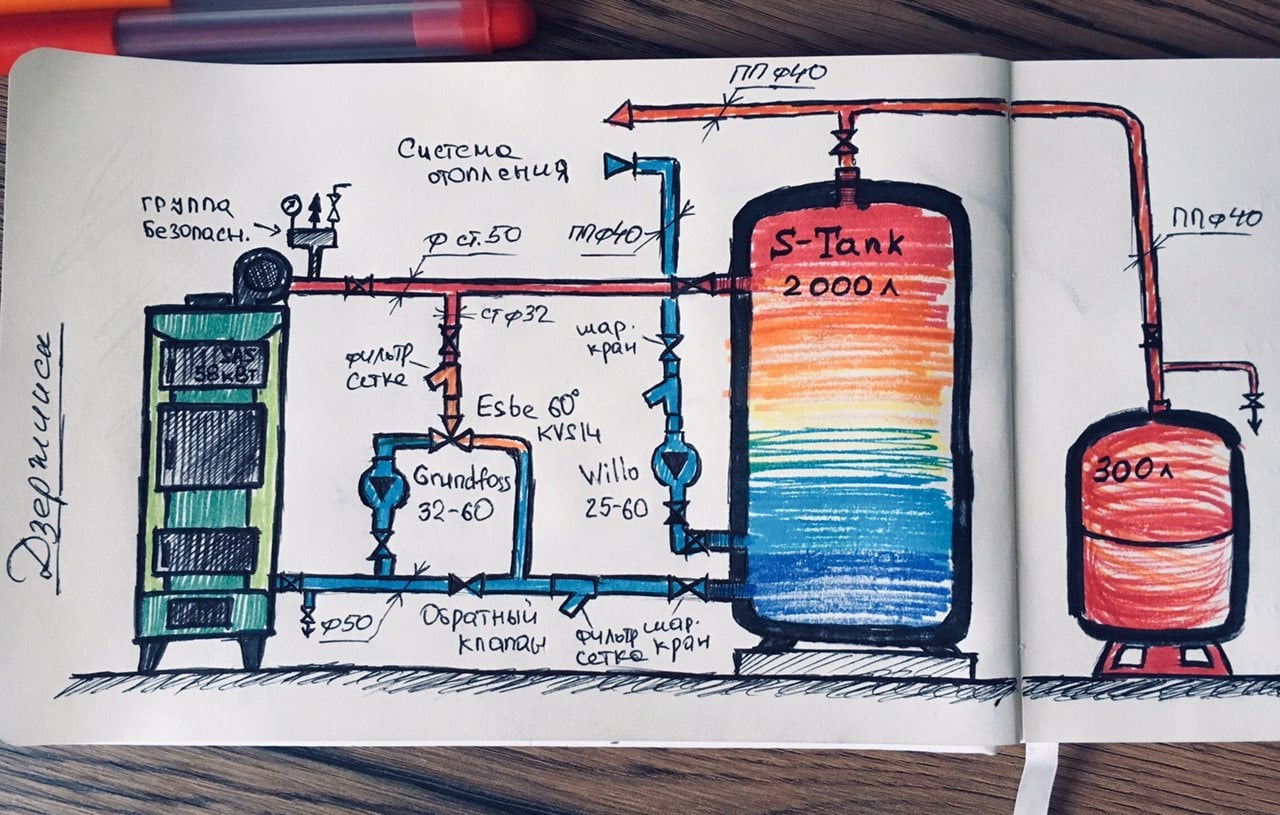 ПП Ф40
Система
отопления
группа
безопасн.
Ф ст.50
ПП Ф40
ПП Ф40
S-Tank
2000 л
ст Ф32
шар.
кран
фильтр
сетка
SAS
58 кВт
Esbe 60°
KVS14
Grundfoss
32-60
Willo
25-60
300 л
Дзермись
Ф50
Обратный
клапан
фильтр
сетка
шар.
кран